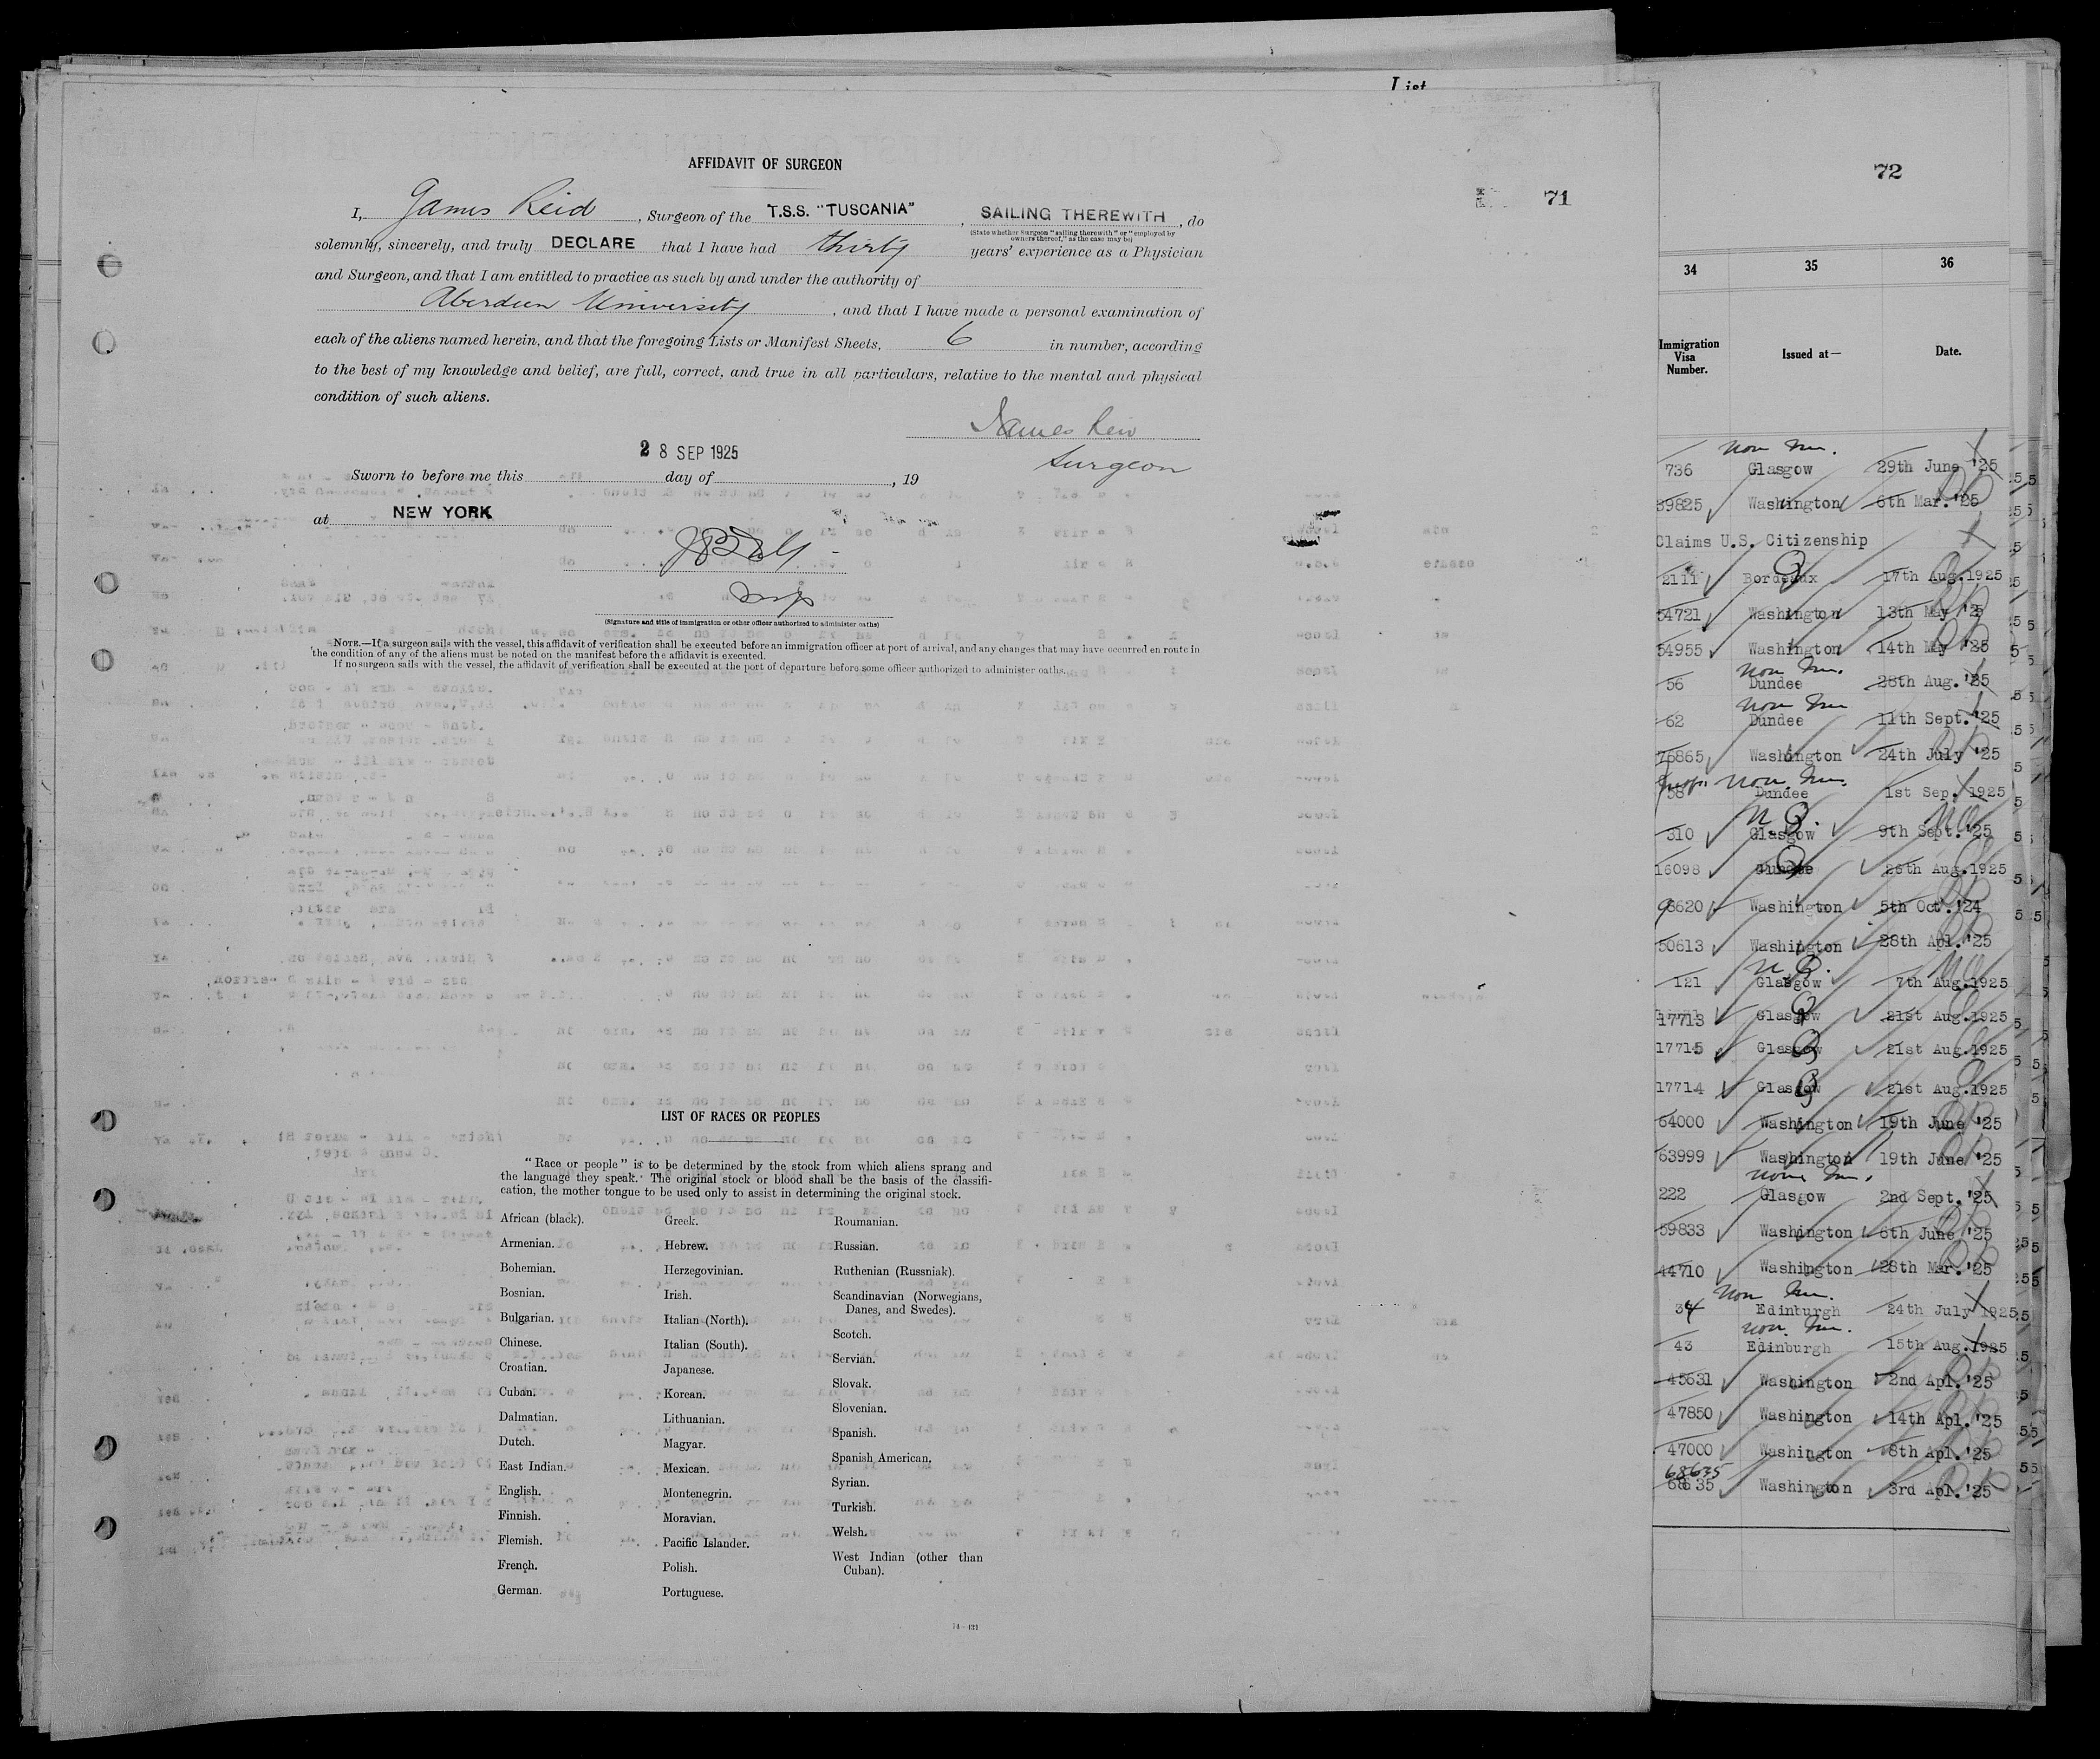 List
AFFIDAVIT OF SURGEON
71
I, James Reid, Surgeon of the T.S.S. "TUSCANIA", SAILING THEREWITH, do
(State whether Surgeon "sailing therewith" or "employed by
owners thereof," as the case may be)
solemnly, sincerely, and truly DECLARE that I have had thirty years' experience as a Physician
and Surgeon, and that I am entitled to practice as such by and under the authority of
Aberdeen University, and that I have made a personal examination of
each of the aliens named herein, and that the foregoing Lists or Manifest Sheets, 6 in number, according
to the best of my knowledge and belief, are full, correct, and true in all particulars, relative to the mental and physical
condition of such aliens.
James Reid
Surgeon
28 SEP 1925
Sworn to before me this day of , 19
at NEW YORK
(Signature and title of immigration or other officer authorized to administer oaths)
NOTE.—If a surgeon sails with the vessel, this affidavit of verification shall be executed before an immigration officer at port of arrival, and any changes that may have occurred en route in
the condition of any of the aliens must be noted on the manifest before the affidavit is executed.
If no surgeon sails with the vessel, the affidavit of verification shall be executed at the port of departure before some officer authorized to administer oaths.
LIST OF RACES OR PEOPLES
"Race or people" is to be determined by the stock from which aliens sprang and
the language they speak. The original stock or blood shall be the basis of the classifi-
cation, the mother tongue to be used only to assist in determining the original stock.
African (black).
Armenian.
Bohemian.
Bosnian.
Bulgarian.
Chinese.
Croatian.
Cuban.
Dalmatian.
Dutch.
East Indian.
English.
Finnish.
Flemish.
French.
German.
Greek.
Hebrew.
Herzegovinian.
Irish.
Italian (North).
Italian (South).
Japanese.
Korean.
Lithuanian.
Magyar.
Mexican.
Montenegrin.
Moravian.
Pacific Islander.
Polish.
Portuguese.
Roumanian.
Russian.
Ruthenian (Russniak).
Scandinavian (Norwegians,
Danes, and Swedes).
Scotch.
Servian.
Slovak.
Slovenian.
Spanish.
Spanish American.
Syrian.
Turkish.
Welsh.
West Indian (other than
Cuban).
14—431
72
34 35 36
Immigration
Visa
Number.
Issued at—
Date.
Non Im.
736 Glasgow 29th June '25
39825 Washington 6th Mar. '25
Claims U.S. Citizenship
2111 Bordeaux 17th Aug. 1925
54721 Washington 13th May '25
54955 Washington 14th May '25
Non Im.
56 Dundee 28th Aug. '25
Non Im
62 Dundee 11th Sept. '25
76865 Washington 24th July '25
Non Im.
58 Dundee 1st Sep. 1925
N Q.
310 Glasgow 9th Sept. '25
16098 Dundee 26th Aug. 1925
98620 Washington 5th Oct. '24
50613 Washington 28th Apl. '25
N Q.
121 Glasgow 7th Aug. 1925
17713 Glasgow 21st Aug. 1925
17715 Glasgow 21st Aug. 1925
17714 Glasgow 21st Aug. 1925
64000 Washington 19th June '25
63999 Washington 19th June '25
Non Im.
222 Glasgow 2nd Sept. '25
59833 Washington 6th June '25
44710 Washington 28th Mar. '25
Non Im.
34 Edinburgh 24th July 1925
Non. Im.
43 Edinburgh 15th Aug. 1925
45631 Washington 2nd Apl. '25
47850 Washington 14th Apl. '25
47000 Washington 8th Apl. '25
68635
68635 Washington 3rd Apl. '25